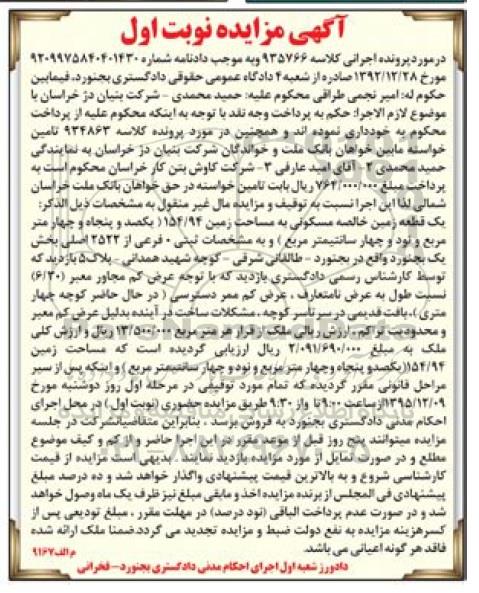 آگهی مزایده نوبت اول
درمورد پرونده اجرائی کلاسه ۹۳۵۷۶۶ وبه موجب دادنامه شماره ۹۲۰۹۹۷۵۸۴۰۴۰۱۴۳۰
مورخ ۱۳۹۲/۱۲/۲۸ صادره از شعبه ۴ دادگاه عمومی حقوقی دادگستری بجنورد، فیمابین
حکوم له: امیر نجمی طراقی محکوم علیه: حمید محمدی - شرکت بنیان دژ خراسان با
موضوع لازم الاجرا: حکم به پرداخت وجه نقد با توجه به اینکه محکوم علیه از پرداخت
محکوم به خودداری نموده اند و همچنین در مورد پرونده کلاسه ۹۳۴۸۶۳ تامین
خواسته مابین خواهان بانک ملت و خواندگان شرکت بنیان دژ خراسان به نمایندگی
حمید محمدی ۲- آقای امید عارفی ۳- شرکت کاوش بتن کار خراسان محکوم است به
پرداخت مبلغ ۷۶۴/۰۰۰/۰۰۰ ریال بابت تامین خواسته در حق خواهان بانک ملت خراسان
شمالی لذا این اجرا نسبت به توقیف و مزایده مال غیر منقول به مشخصات ذیل الذکر:
یک قطعه زمین خالصه مسکونی به مساحت زمین ۱۵۴/۹۴ ( یکصد و پنجاه و چهار متر
مربع و نود و چهار سانتیمتر مربع ) و به مشخصات ثبتی ۰ فرعی از ۲۵۲۲ اصلی بخش
یک بجنورد واقع در بجنورد - طالقانی شرقی - کوچه شهید همدانی - پلاک۵ بازدید که
توسط کارشناس رسمی دادگستری بازدید که با توجه عرض کم مجاور معبر (۶/۳۰)
نسبت طول به عرض نامتعارف ، عرض کم ممر دسترسی ( در حال حاضر کوچه چهار
متری )، بافت قدیمی در سرتاسر کوچه ، مشکلات ساخت در آینده بدلیل عرض کم معبر
و محدودیت تراکم ، ارزش ریالی ملک از قرار هر متر مربع ۱۳/۵۰۰/۰۰۰ ریال و ارزش کلی
ملک به مبلغ ۲/۰۹۱/۶۹۰/۰۰۰ ریال ارزیابی گردیده است که مساحت زمین
۱۵۴/۹۴(یکصدو پنجاه وچهار متر مربع و نود و چهار سانتیمتر مربع ) و اینکه پس از سیر
مراحل قانونی مقرر گردیده که تمام مورد توقیفی در مرحله اول روز دوشنبه مورخ
۱۳۹۵/۱۲/۰۹ ازساعت ۹:۰۰ تا واز ۹:۳۰ طریق مزایده حضوری (نوبت اول ) در محل اجرای
احکام مدنی دادگستری بجنورد به فروش برسد ، بنابراین متقاضیانشرکت در جلسه
مزایده میتوانند پنج روز قبل از موعد مقرر در این اجرا حاضر و از کم و کیف موضوع
مطلع و در صورت تمایل از مورد مزایده بازدید نمایند . بدیهی است مزایده از قیمت
کارشناسی شروع و به بالاترین قیمت پیشنهادی واگذار خواهد شد و ده درصد مبلغ
پیشنهادی فی المجلس از برنده مزایده اخذ و مابقی مبلغ نیز ظرف یک ماه وصول خواهد
شد و در صورت عدم پرداخت الباقی (نود درصد) در مهلت مقرر ، مبلغ تودیعی پس از
کسرهزینه مزایده به نفع دولت ضبط و مزایده تجدید می گردد.ضمنا ملک ارائه شده
فاقد هر گونه اعیانی می باشد.
م الف۹۱۶۷
دادورز شعبه اول اجرای احکام مدنی دادگستری بجنورد- فخرانی